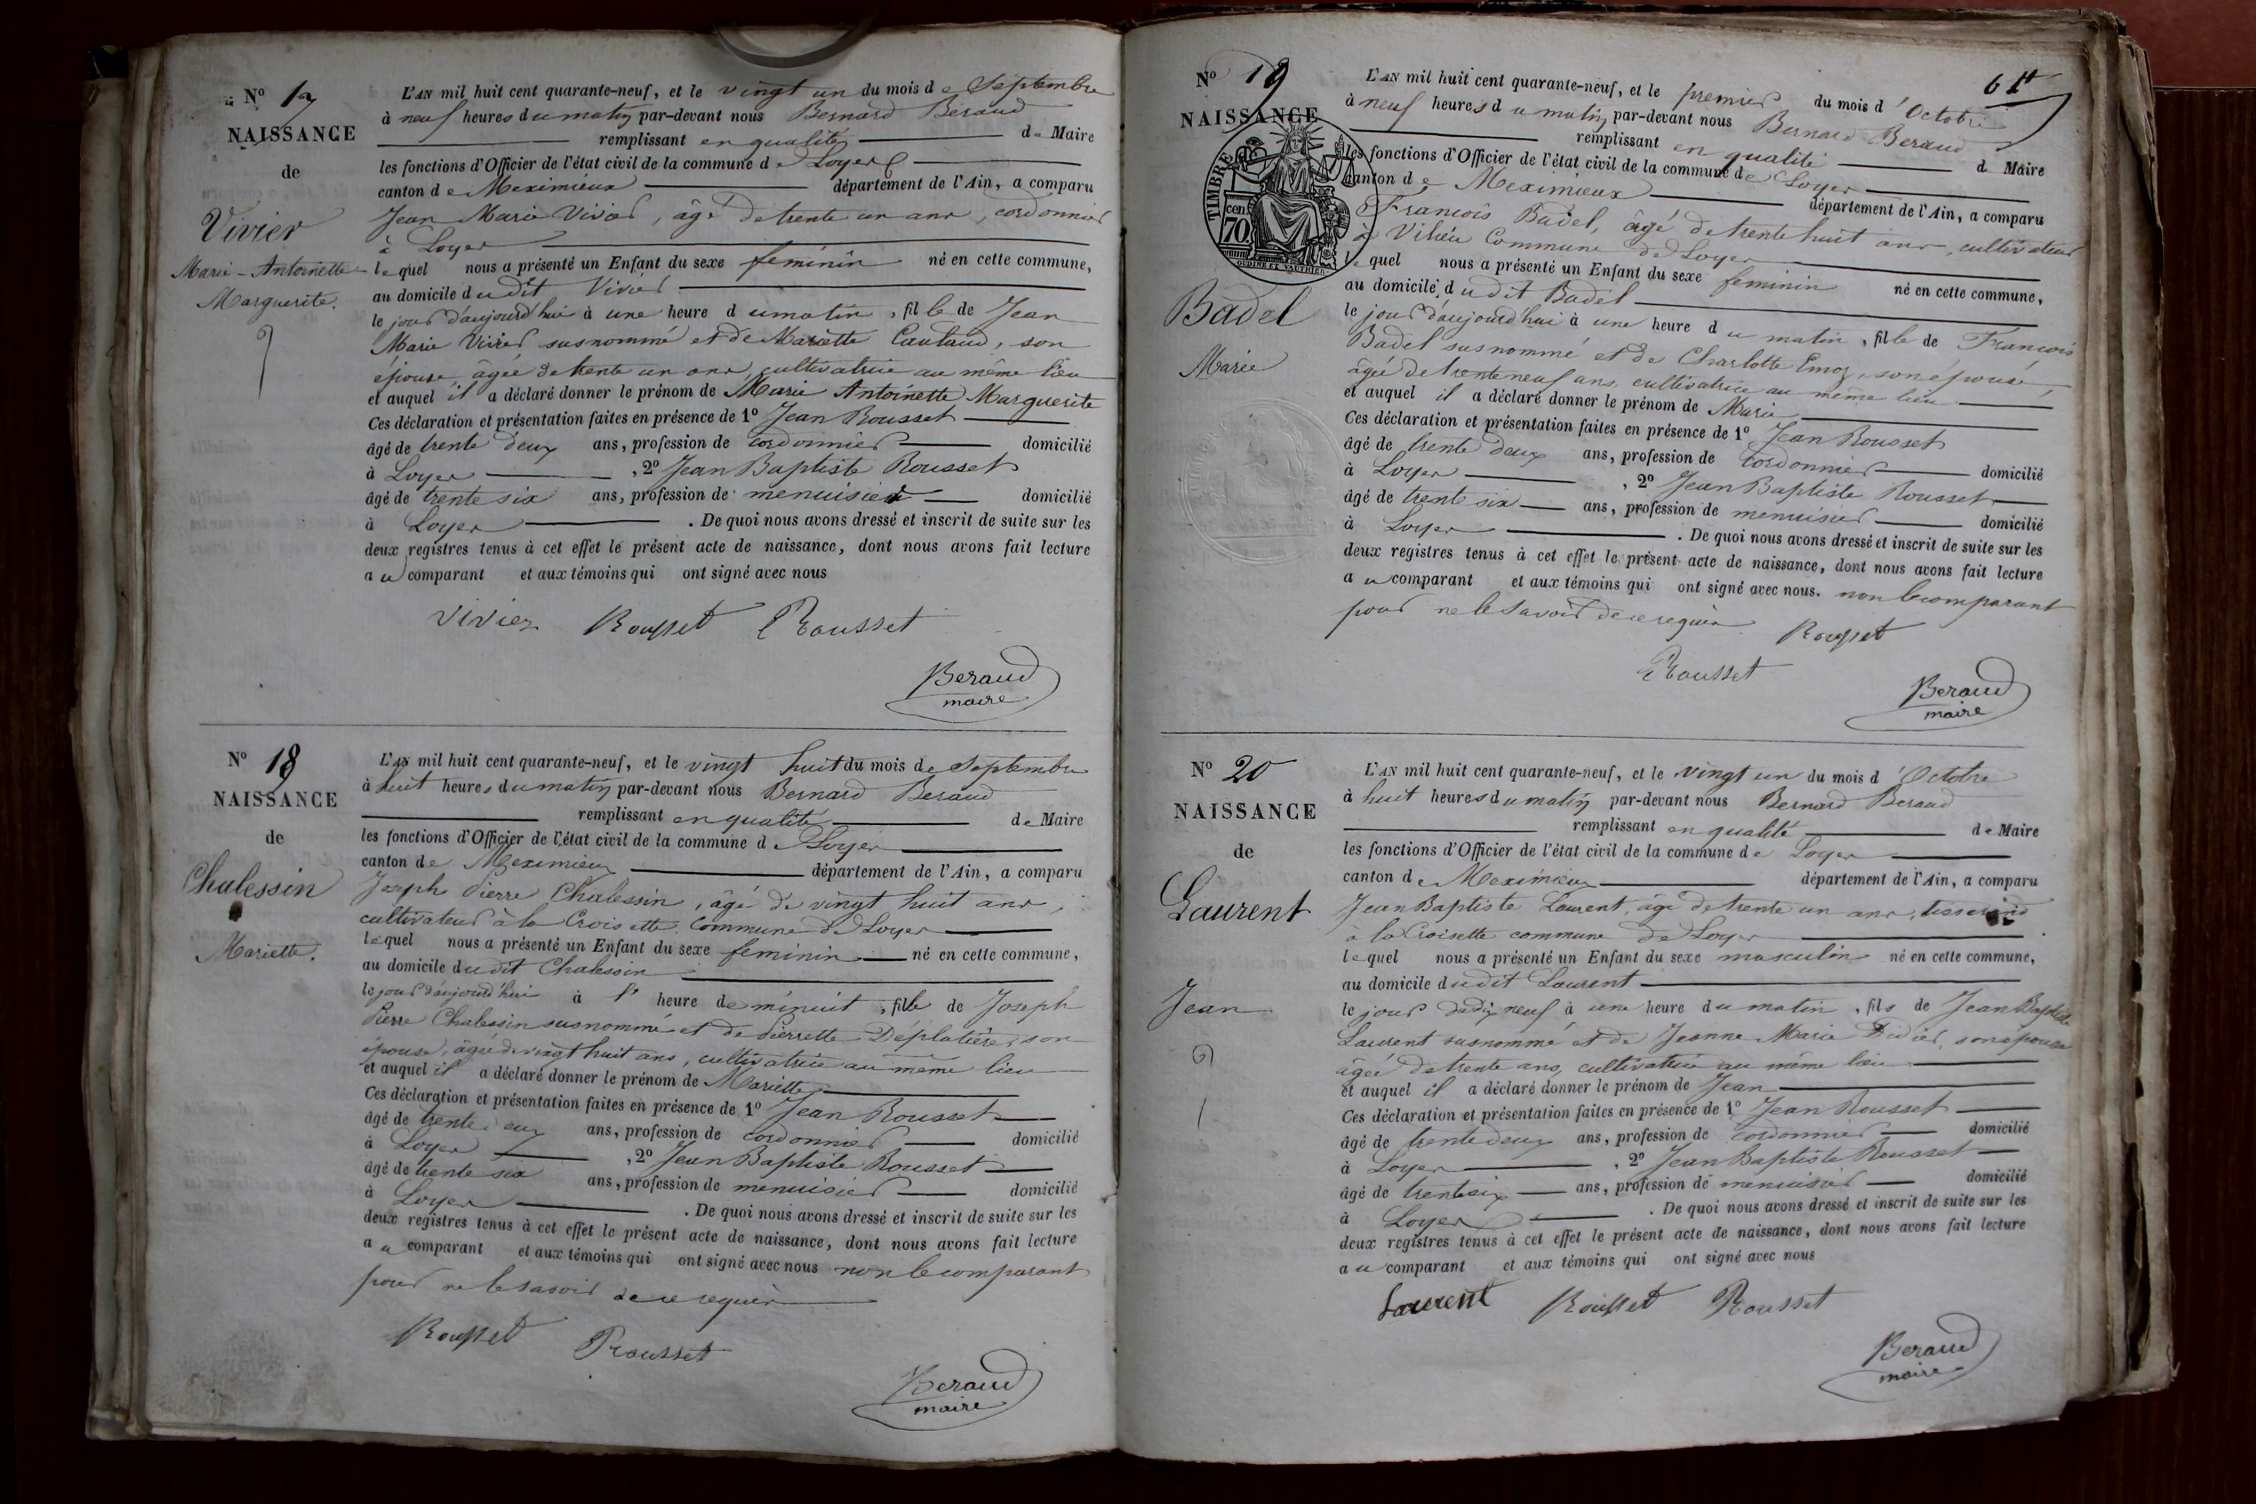 N° 17
NAISSANCE
de
Vivier
Marie-Antoinette
Marguerite.
L'AN mil huit cent quarante-neuf, et le vingt un du mois de Septembre
à neuf heures du matin par-devant nous Bernard Beraud
remplissant en qualité de Maire
les fonctions d'Officier de l'état civil de la commune de Loyes
canton de Meximieux département de l'Ain, a comparu
Jean Marie Vivier, âgé de trente un ans, cordonnier
à Loyes
lequel nous a présenté un Enfant du sexe feminin né en cette commune,
au domicile dudit Vivier
le jour d'aujourd'hui à une heure du matin, fille de Jean
Marie Vivier susnommé et de Mariette, son
épouse, âgée de trente un ans, cultivatrice au même lieu
et auquel il a déclaré donner le prénom de Marie Antoinette Marguerite
Ces déclaration et présentation faites en présence de 1° Jean Rousset
âgé de trente deux ans, profession de cordonnier domicilié
à Loyes, 2° Jean Baptiste Rousset
âgé de trente six ans, profession de menuisier domicilié
à Loyes. De quoi nous avons dressé et inscrit de suite sur les
deux registres tenus à cet effet le présent acte de naissance, dont nous avons fait lecture
au comparant et aux témoins qui ont signé avec nous
Vivier Rousset Rousset
Beraud
maire
N° 18
NAISSANCE
de
Chalessin
Mariette.
L'AN mil huit cent quarante-neuf, et le vingt huit du mois de Septembre
à huit heures du matin par-devant nous Bernard Beraud
remplissant en qualité de Maire
les fonctions d'Officier de l'état civil de la commune de Loyes
canton de Meximieux département de l'Ain, a comparu
Joseph Pierre Chalessin, âgé de vingt huit ans,
cultivateur à la Croisette Commune de Loyes
lequel nous a présenté un Enfant du sexe feminin né en cette commune,
au domicile dudit Chalessin
le jour d'aujourd'hui à l'heure de minuit, fille de Joseph
Pierre Chalessin susnommé et de Pierrette Déplatière, son
épouse, âgée de vingt huit ans, cultivatrice au même lieu
et auquel il a déclaré donner le prénom de Mariette
Ces déclaration et présentation faites en présence de 1° Jean Rousset
âgé de trente deux ans, profession de cordonnier domicilié
à Loyes, 2° Jean Baptiste Rousset
âgé de trente six ans, profession de menuisier domicilié
à Loyes. De quoi nous avons dressé et inscrit de suite sur les
deux registres tenus à cet effet le présent acte de naissance, dont nous avons fait lecture
au comparant et aux témoins qui ont signé avec nous non le comparant
pour ne le savoir de ce requis
Rousset Rousset
Beraud
maire
61
N° 19
NAISSANCE
TIMBRE
cen
70
OUDINÉ ET VAUTHIER
Badel
Marie
L'AN mil huit cent quarante-neuf, et le premier du mois d'Octobre
à neuf heures du matin par-devant nous Bernard Beraud
remplissant en qualité de Maire
les fonctions d'Officier de l'état civil de la commune de Loyes
canton de Meximieux département de l'Ain, a comparu
François Badel, âgé de trente huit ans, cultivateur
à Vilieu Commune de Loyes
lequel nous a présenté un Enfant du sexe feminin né en cette commune,
au domicile dudit Badel
le jour d'aujourd'hui à une heure du matin, fille de François
Badel susnommé et de Charlotte, son épouse,
âgée de trente neuf ans, cultivatrice au même lieu
et auquel il a déclaré donner le prénom de Marie
Ces déclaration et présentation faites en présence de 1° Jean Rousset
âgé de trente deux ans, profession de cordonnier domicilié
à Loyes, 2° Jean Baptiste Rousset
âgé de trente six ans, profession de menuisier domicilié
à Loyes. De quoi nous avons dressé et inscrit de suite sur les
deux registres tenus à cet effet le présent acte de naissance, dont nous avons fait lecture
au comparant et aux témoins qui ont signé avec nous. non le comparant
pour ne le savoir de ce requis
Rousset
Rousset
Beraud
maire
N° 20
NAISSANCE
de
Laurent
Jean
L'AN mil huit cent quarante-neuf, et le vingt un du mois d'Octobre
à huit heures du matin par-devant nous Bernard Beraud
remplissant en qualité de Maire
les fonctions d'Officier de l'état civil de la commune de Loyes
canton de Meximieux département de l'Ain, a comparu
Jean Baptiste Laurent, âgé de trente un ans, tisserand
à la Croisette commune de Loyes
lequel nous a présenté un Enfant du sexe masculin né en cette commune,
au domicile dudit Laurent
le jour du dix neuf à une heure du matin, fils de Jean Baptiste
Laurent susnommé et de Jeanne Marie Didier, son épouse
âgée de trente ans, cultivatrice au même lieu
et auquel il a déclaré donner le prénom de Jean
Ces déclaration et présentation faites en présence de 1° Jean Rousset
âgé de trente deux ans, profession de cordonnier domicilié
à Loyes, 2° Jean Baptiste Rousset
âgé de trente six ans, profession de menuisier domicilié
à Loyes. De quoi nous avons dressé et inscrit de suite sur les
deux registres tenus à cet effet le présent acte de naissance, dont nous avons fait lecture
au comparant et aux témoins qui ont signé avec nous
Laurent Rousset Rousset
Beraud
maire